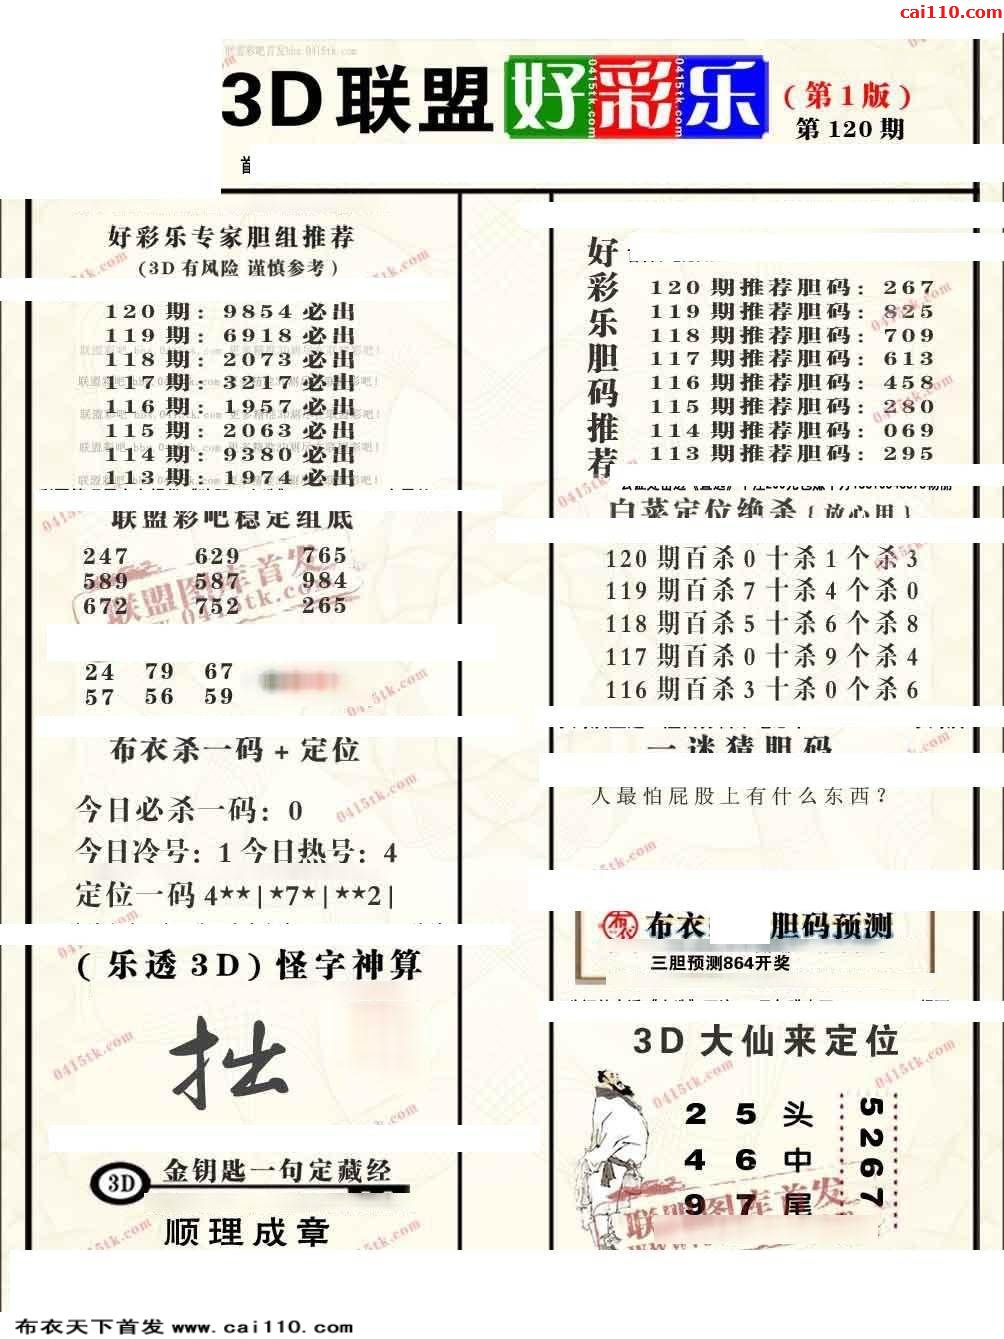 cai110.com
3D联盟好彩乐
(第1版)
第120期
好彩乐专家胆组推荐
(3D有风险 谨慎参考)
120期: 9854必出
119期: 6918必出
118期: 2073必出
117期: 3217必出
116期: 1957必出
115期: 2063必出
114期: 9380必出
113期: 1974必出
联盟彩吧稳定组底
247 629 765
589 587 984
672 752 265
24 79 67
57 56 59
布衣杀一码+定位
今日必杀一码: 0
今日冷号: 1 今日热号: 4
定位一码 4**|*7*|**2|
(乐透3D)怪字神算
拙
3D 金钥匙一句定藏经
顺理成章
好彩乐胆码推荐
120期推荐胆码: 267
119期推荐胆码: 825
118期推荐胆码: 709
117期推荐胆码: 613
116期推荐胆码: 458
115期推荐胆码: 280
114期推荐胆码: 069
113期推荐胆码: 295
白菜定位绝杀{放心用}
120期百杀0十杀1个杀3
119期百杀7十杀4个杀0
118期百杀5十杀6个杀8
117期百杀0十杀9个杀4
116期百杀3十杀0个杀6
一迷猜胆码
人最怕屁股上有什么东西?
布衣 布衣 胆码预测
三胆预测864开奖
3D大仙来定位
2 5 头
4 6 中
9 7 尾
5267
联盟图库首发
0415tk.com
布衣天下首发 www.cai110.com